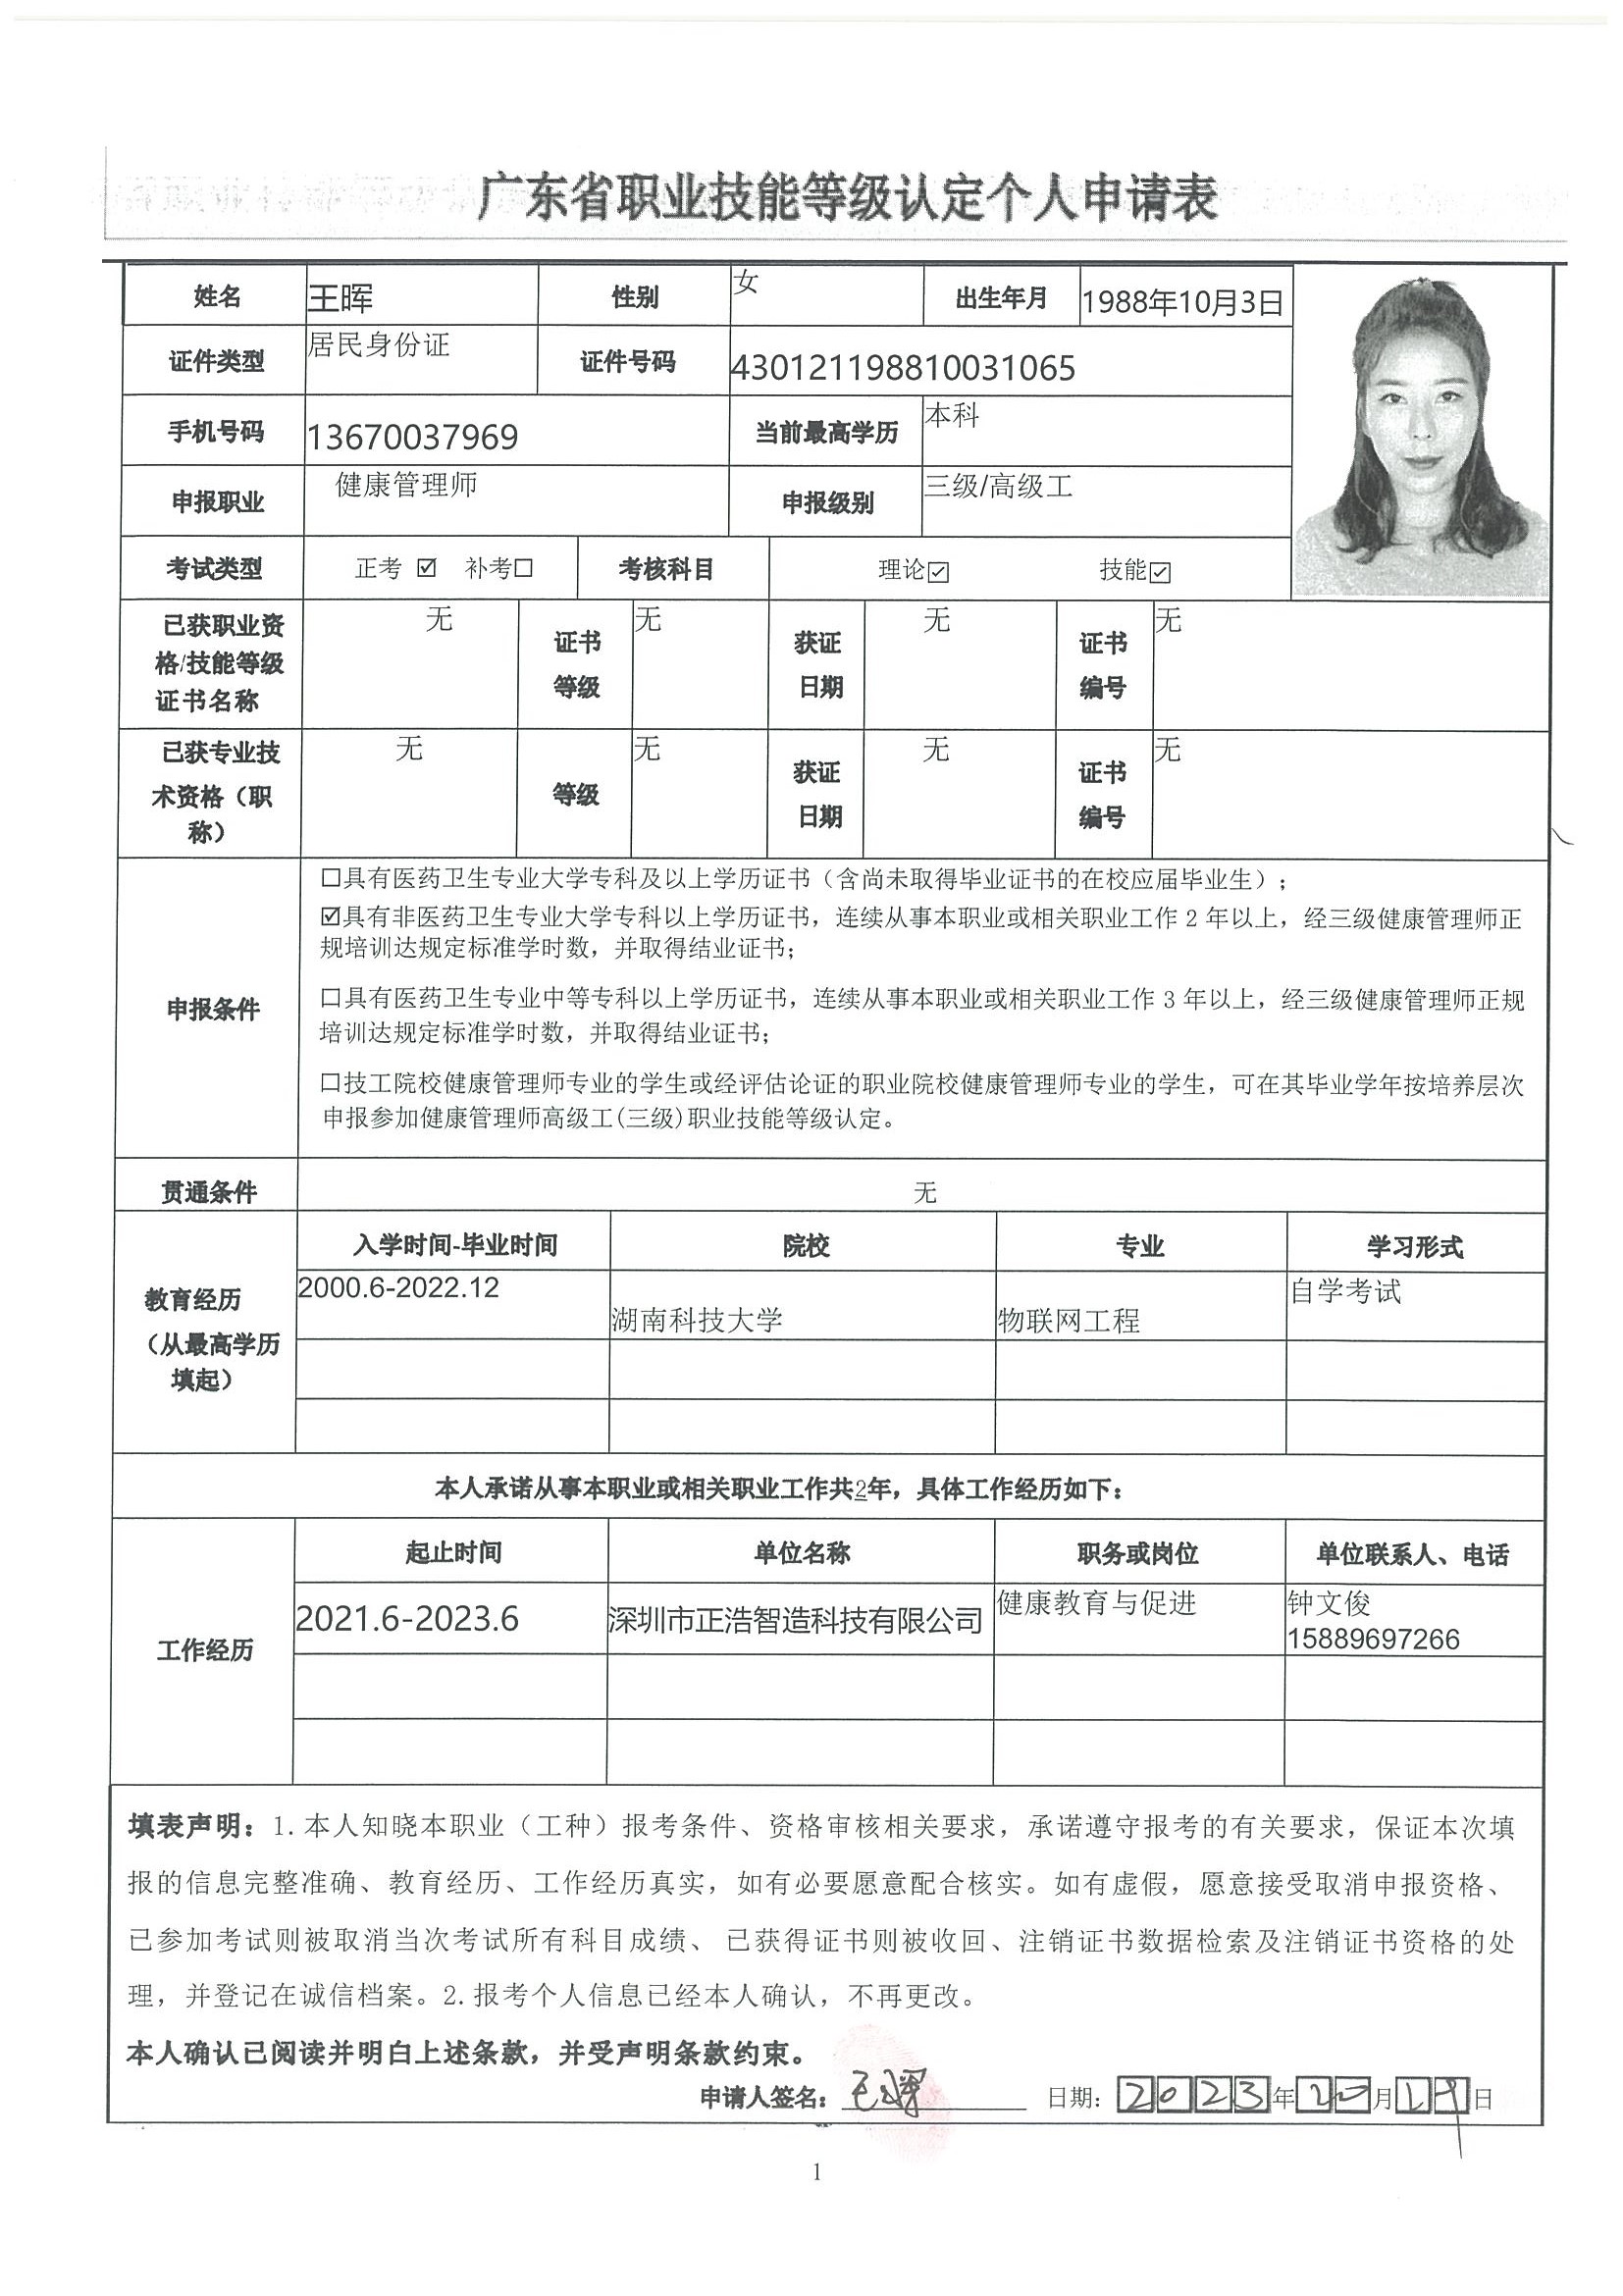 广东省职业技能等级认定个人申请表
姓名 王晖 性别 女 出生年月 1988年10月3日
证件类型 居民身份证 证件号码 430121198810031065
手机号码 13670037969 当前最高学历 本科
申报职业 健康管理师 申报级别 三级/高级工
考试类型 正考☑ 补考☐ 考核科目 理论☑ 技能☑
已获职业资格/技能等级证书名称 无 证书等级 无 获证日期 无 证书编号 无
已获专业技术资格（职称） 无 等级 无 获证日期 无 证书编号 无
申报条件
☐具有医药卫生专业大学专科及以上学历证书（含尚未取得毕业证书的在校应届毕业生）；
☑具有非医药卫生专业大学专科以上学历证书，连续从事本职业或相关职业工作 2 年以上，经三级健康管理师正
规培训达规定标准学时数，并取得结业证书；
☐具有医药卫生专业中等专科以上学历证书，连续从事本职业或相关职业工作 3 年以上，经三级健康管理师正规
培训达规定标准学时数，并取得结业证书；
☐技工院校健康管理师专业的学生或经评估论证的职业院校健康管理师专业的学生，可在其毕业学年按培养层次
申报参加健康管理师高级工(三级)职业技能等级认定。
贯通条件 无
教育经历（从最高学历填起）
入学时间-毕业时间 院校 专业 学习形式
2000.6-2022.12 湖南科技大学 物联网工程 自学考试
本人承诺从事本职业或相关职业工作共2年，具体工作经历如下：
工作经历
起止时间 单位名称 职务或岗位 单位联系人、电话
2021.6-2023.6 深圳市正浩智造科技有限公司 健康教育与促进 钟文俊
15889697266
填表声明：1.本人知晓本职业（工种）报考条件、资格审核相关要求，承诺遵守报考的有关要求，保证本次填
报的信息完整准确、教育经历、工作经历真实，如有必要愿意配合核实。如有虚假，愿意接受取消申报资格、
已参加考试则被取消当次考试所有科目成绩、 已获得证书则被收回、注销证书数据检索及注销证书资格的处
理，并登记在诚信档案。2.报考个人信息已经本人确认，不再更改。
本人确认已阅读并明白上述条款，并受声明条款约束。
申请人签名：王晖 日期：2023年10月19日
1